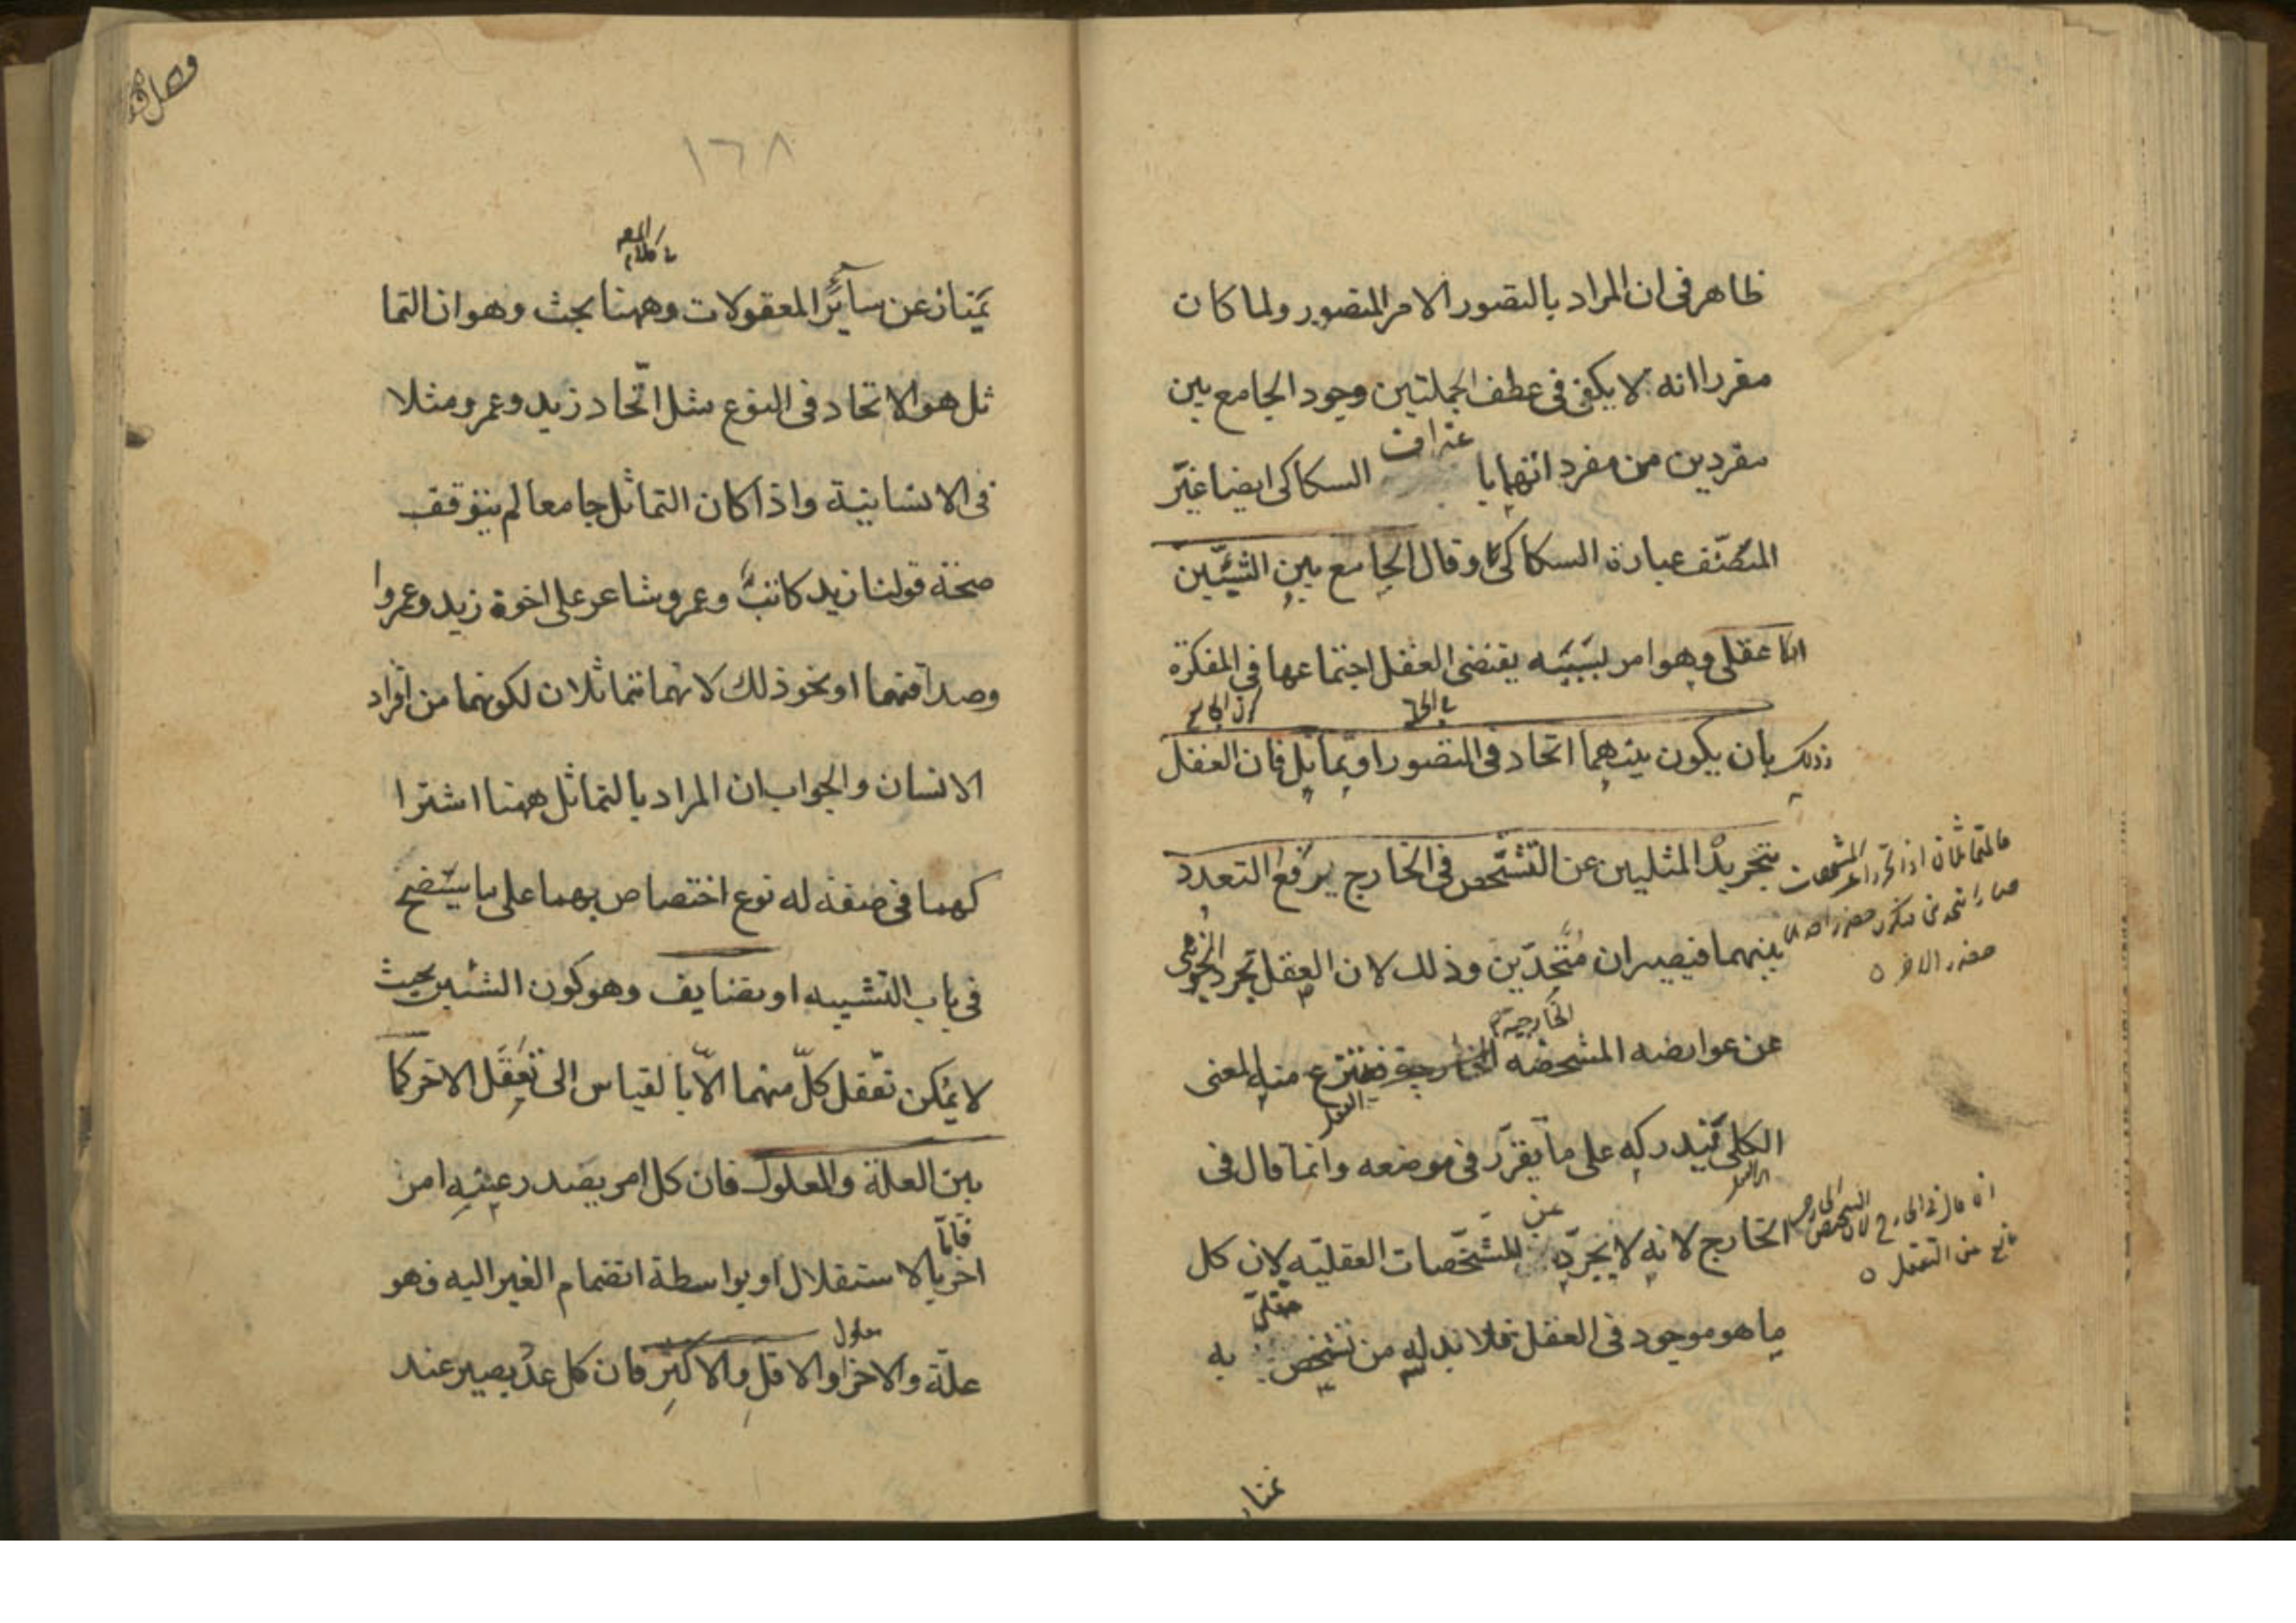 ظاهر فى ان المراد بالتصور الامر المتصور ولما كان
مقررا انه لا يكفى فى عطف الجملتين وجود الجامع بين
مفردين من مفرداتهما باعتراف السكاكى ايضا غيّر
المصنّف عبارة السكاكى وقال الجامع بين الشيئين
اما عقلى وهو امر بسببه يقتضى العقل اجتماعهما فى المفكرة
وذلك بان يكون بينهما اتحاد فى التصور او تماثل فان العقل
بتجريد المثلين عن التشخّص فى الخارج يرفع التعدد
بينهما فيصيران متّحدين وذلك لان العقل يجرد الجزئى
عن عوارضه المشخصه الخارجية فينتزع منه المعنى
الكلى فيدركه على ما تقرّر فى موضعه وانما قال فى
الخارج لانه لا يجرّده عن المشخّصات العقليّه لان كل
ما هو موجود فى العقل فلا بد له من تشخص عقلىّ به
فالمتماثلان اذا تجردا عن المشخصات
حضور الاخر
انما قال فى الخارج لان التشخص الخارجى
مانع من التعقل
يمتاز
١٦٨
فى كلام المصـ
يمتاز عن سائر المعقولات وههنا بحث وهو ان التما
ثل هو الاتحاد فى النوع مثل اتّحاد زيد وعمرو مثلا
فى الانسانية واذا كان التماثل جامعا لم يتوقف
صحة قولنا زيد كاتب وعمرو شاعر على اخوة زيد وعمرو ا
وصداقتهما او نحو ذلك لانهما متماثلان لكونهما من افراد
الانسان والجواب ان المراد بالتماثل ههنا اشترا
كهما فى صفة له نوع اختصاص بهما على ما سيتّضح
فى باب التشبيه او تضايف وهو كون الشيئين بحيث
لا يمكن تعقل كلّ منهما الاّ بالقياس الى تعقّل الاخر كما
بين العلة والمعلول فان كل امر يصدر عنه امر
اخر بالاستقلال او بواسطة انضمام الغير اليه فهو
علّة والاخر معلول او الاقل والاكثر فان كل عدد يصير عند